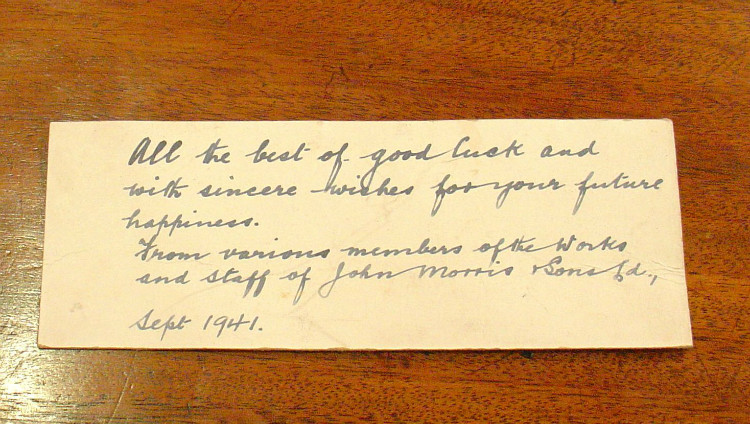 All the best of good luck and
with sincere wishes for your future
happiness.
From various members of the Works
and Staff of John Morris & Sons Ld.,
Sept 1941.